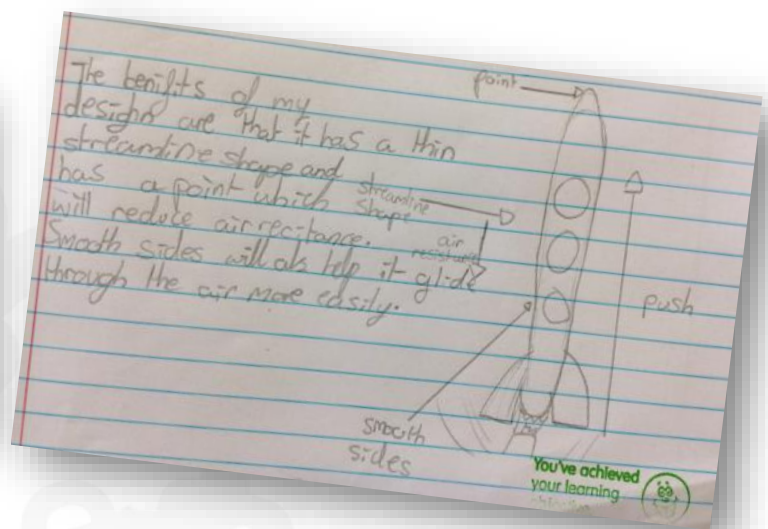 The benifits of my
design are that it has a thin
streamline shape and
has a point which
will reduce air recitance.
Smooth sides will als help it glide
through the air more easily.
point
streamline
shape
air
resistance
push
smooth
sides
You've achieved
your learning
objective